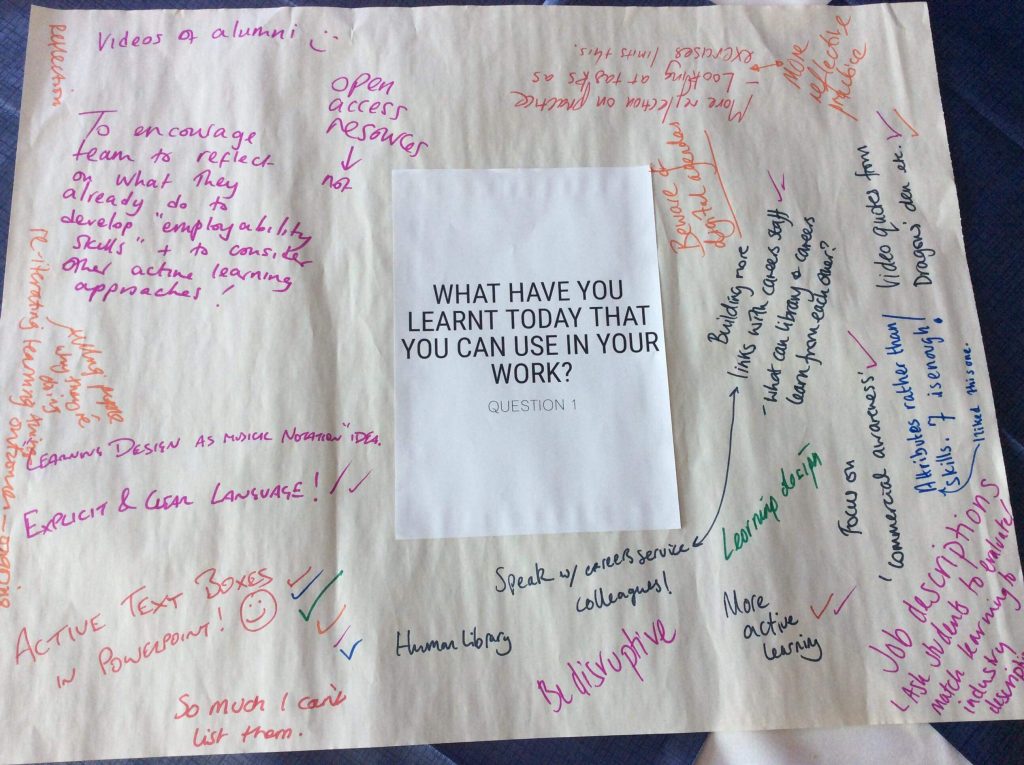 Reflection
Videos of alumni
open
access
resources
To encourage
team to reflect
on what they
already do to
develop "employability
skills" + to consider
other active learning
approaches!
More reflection on practice
- Looking at tasks as
exercises limits this.
More
reflective
practice
Beware of
digital agendas
WHAT HAVE YOU
LEARNT TODAY THAT
YOU CAN USE IN YOUR
WORK?
QUESTION 1
Building more
links with careers staff
- what can library & careers
learn from each other?
Video quotes from
Dragons' den etc.
Focus on
'commercial awareness'
Attributes rather than
skills. 7 is enough!
I liked this one.
Job descriptions
Ask students to evaluate/
match learning to
industry
re-iterating learning outcomes
telling people
why they're
doing
things
"LEARNING DESIGN AS MUSICAL NOTATION" IDEA.
EXPLICIT & CLEAR LANGUAGE!
Learning design
Speak w/ careers service
colleagues!
ACTIVE TEXT BOXES
IN POWERPOINT!
Human Library
Be disruptive
More
active
learning
So much I can't
list them.